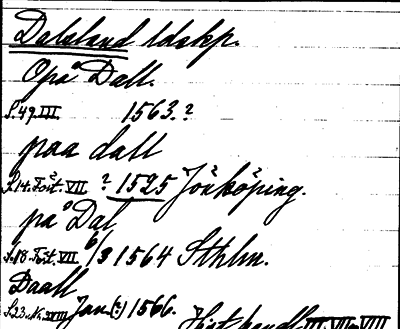 Dalsland ldskp.
Opå Dall.
S. 49. III. 1563.?
paa dall
S. 14. Tört. VII ? 1525 Jönköping.
på Dal
S. 18. Tört. VII. 6/3 1564 Sthlm.
Daall
Jan.(?) 1566.
Hist. handl. III. VII. VIII